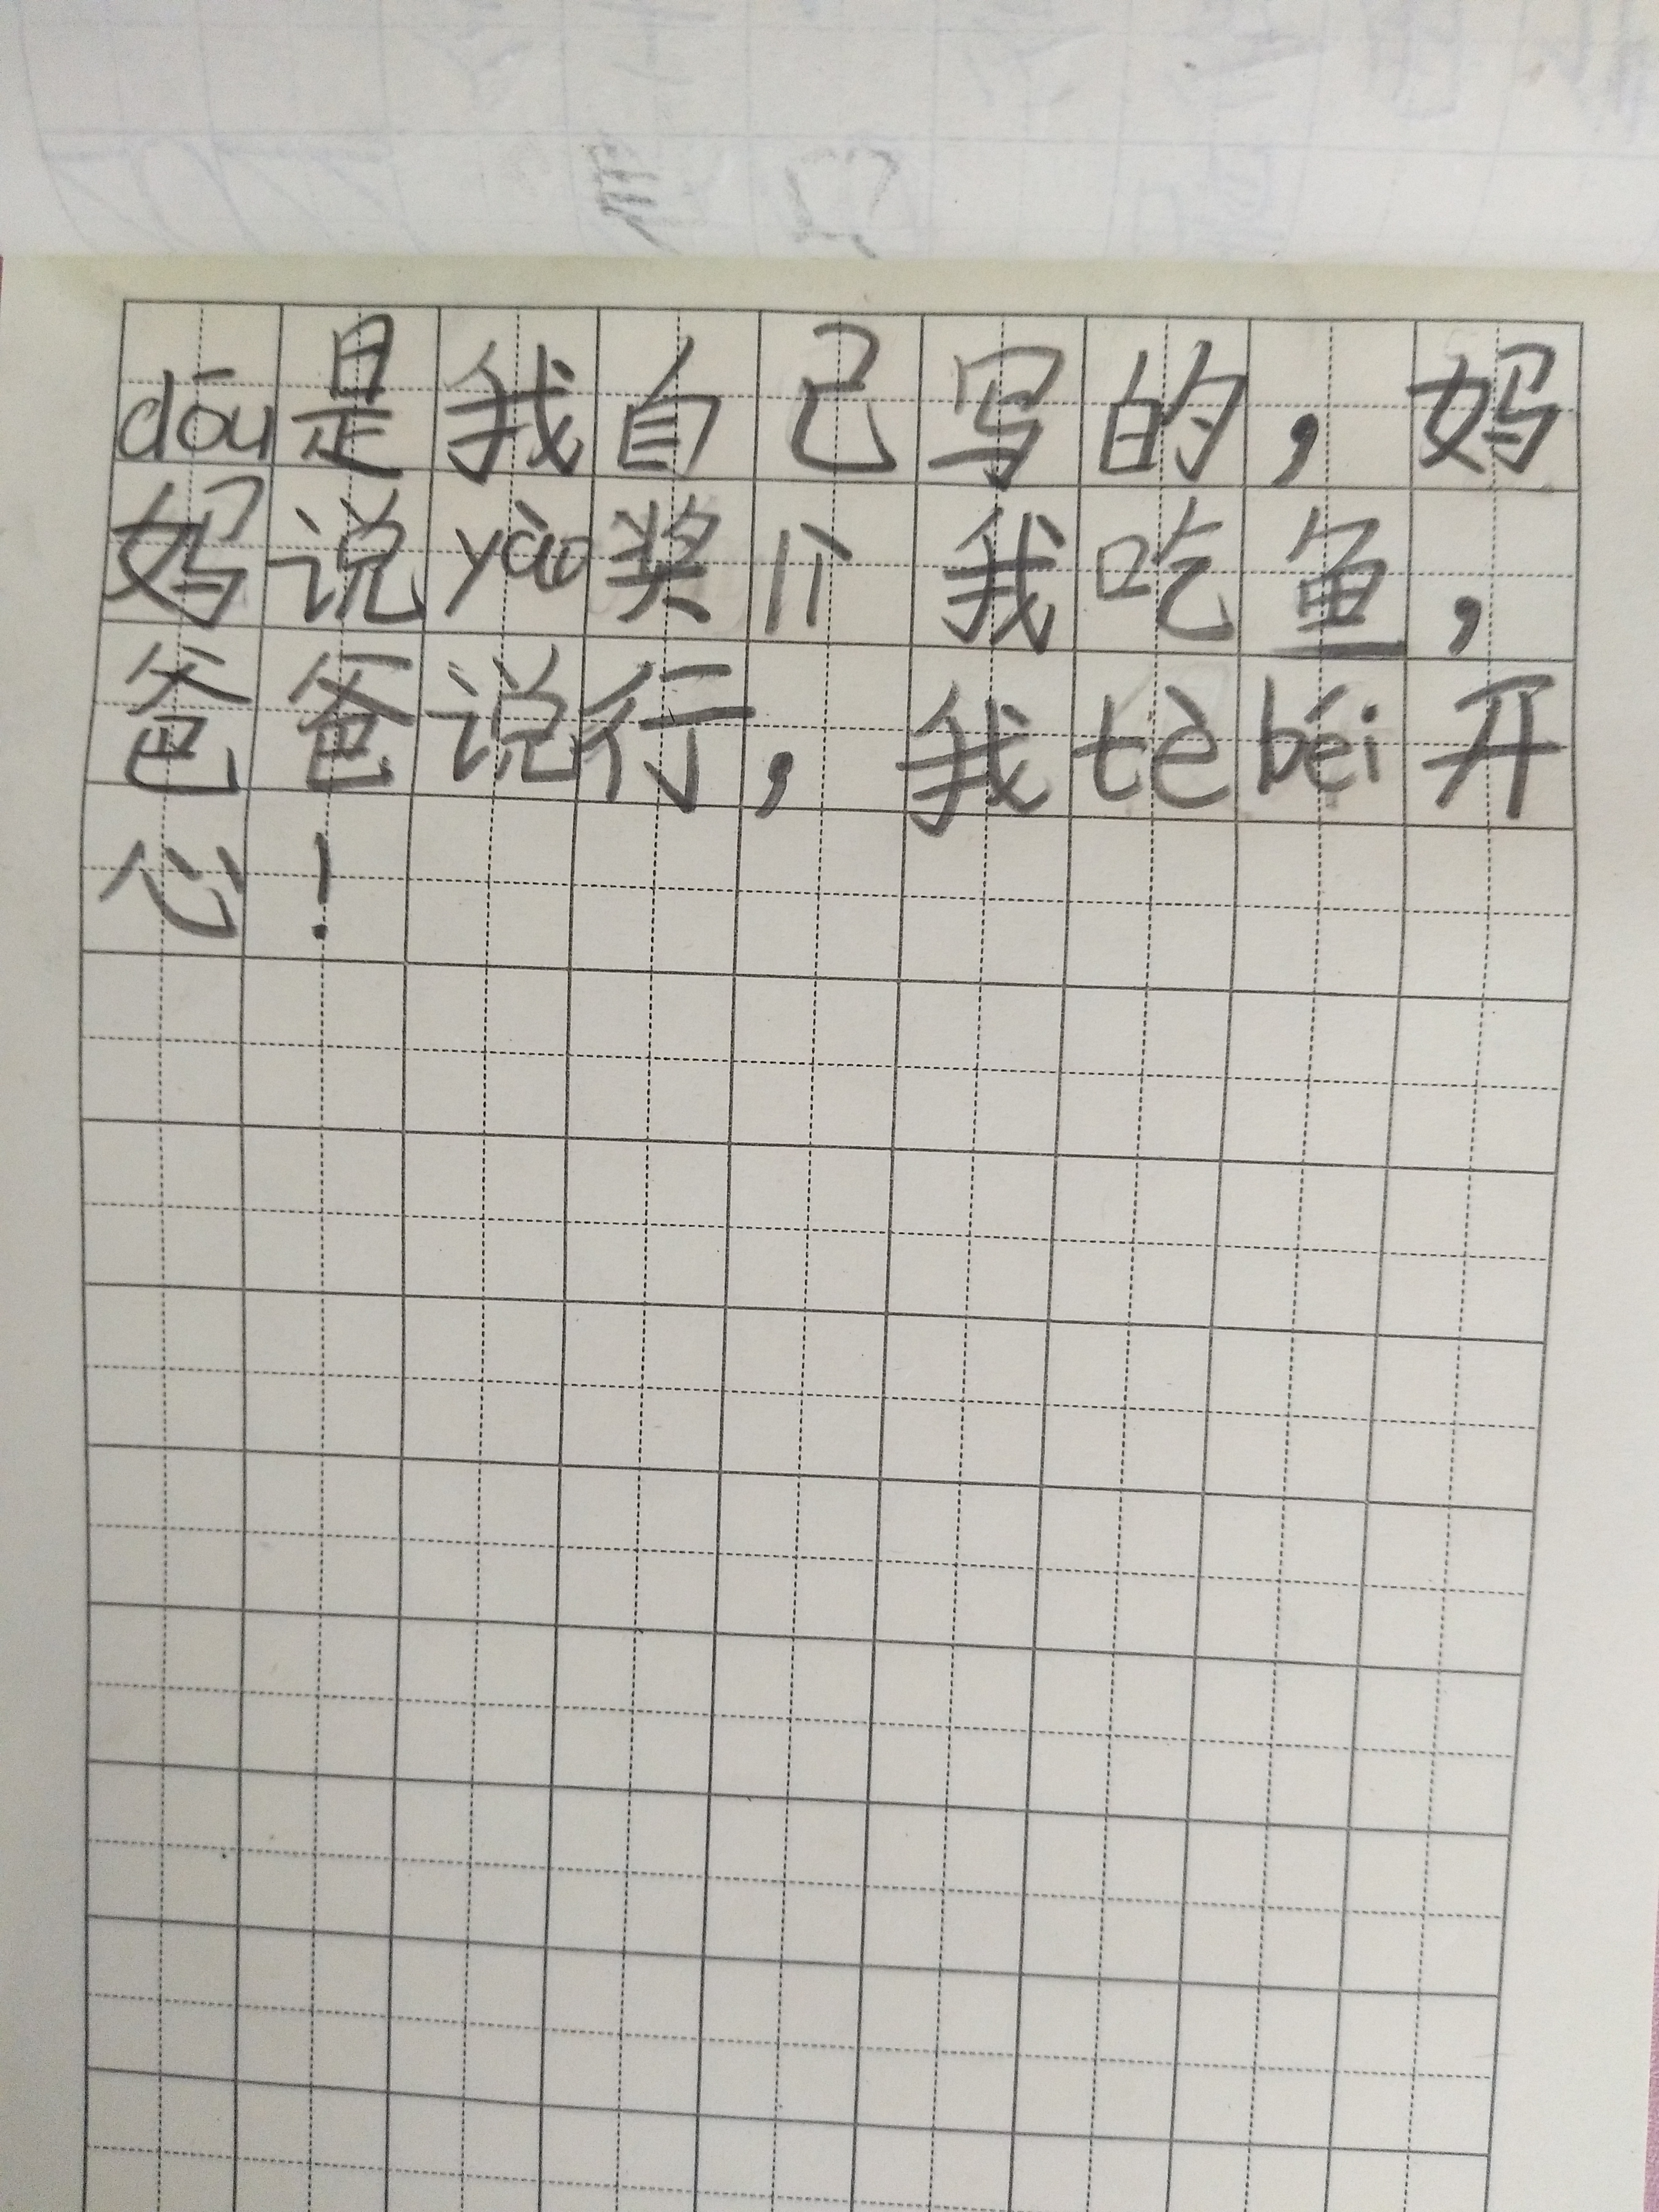 dōu是我自己写的，妈
妈说yào奖lì我吃鱼，
爸爸说行，我tèbéi开
心！